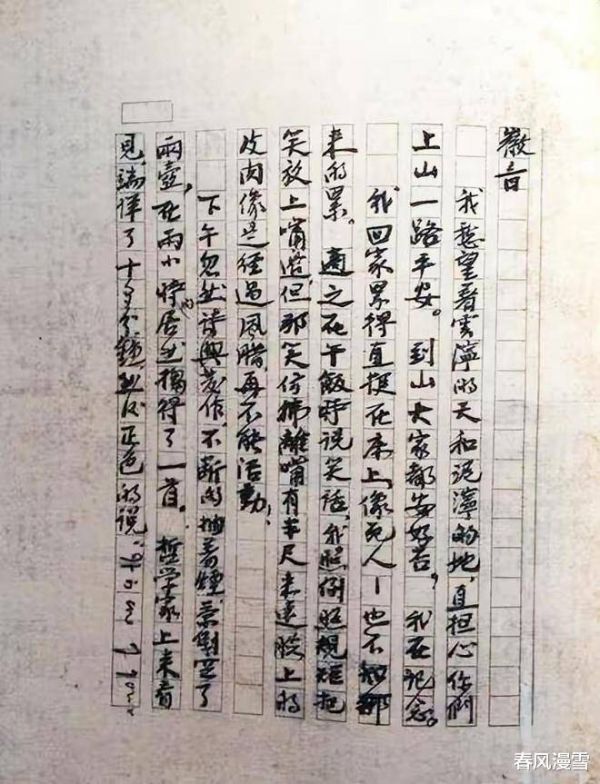 徽音
我愁望着雲濘的天和泥濘的地，直担心你們
上山一路平安。到山大家都安好否？我在記念。
我回家累得直挺在床上，像死人—也不知那
来的累。適之在午飯時说笑话，我照例照規矩把
笑放上嘴邊，但那笑仿彿離嘴有半尺来遠，脸上的
皮肉像是经過風腊，再不能活動！
下午忽然诗興发作，不断的抽着烟，茶倒空了
兩壺，在兩小時內，居然搊得了一首。哲学家上来看
見，端详了十多分鐘，然后正色的说：
春风漫雪